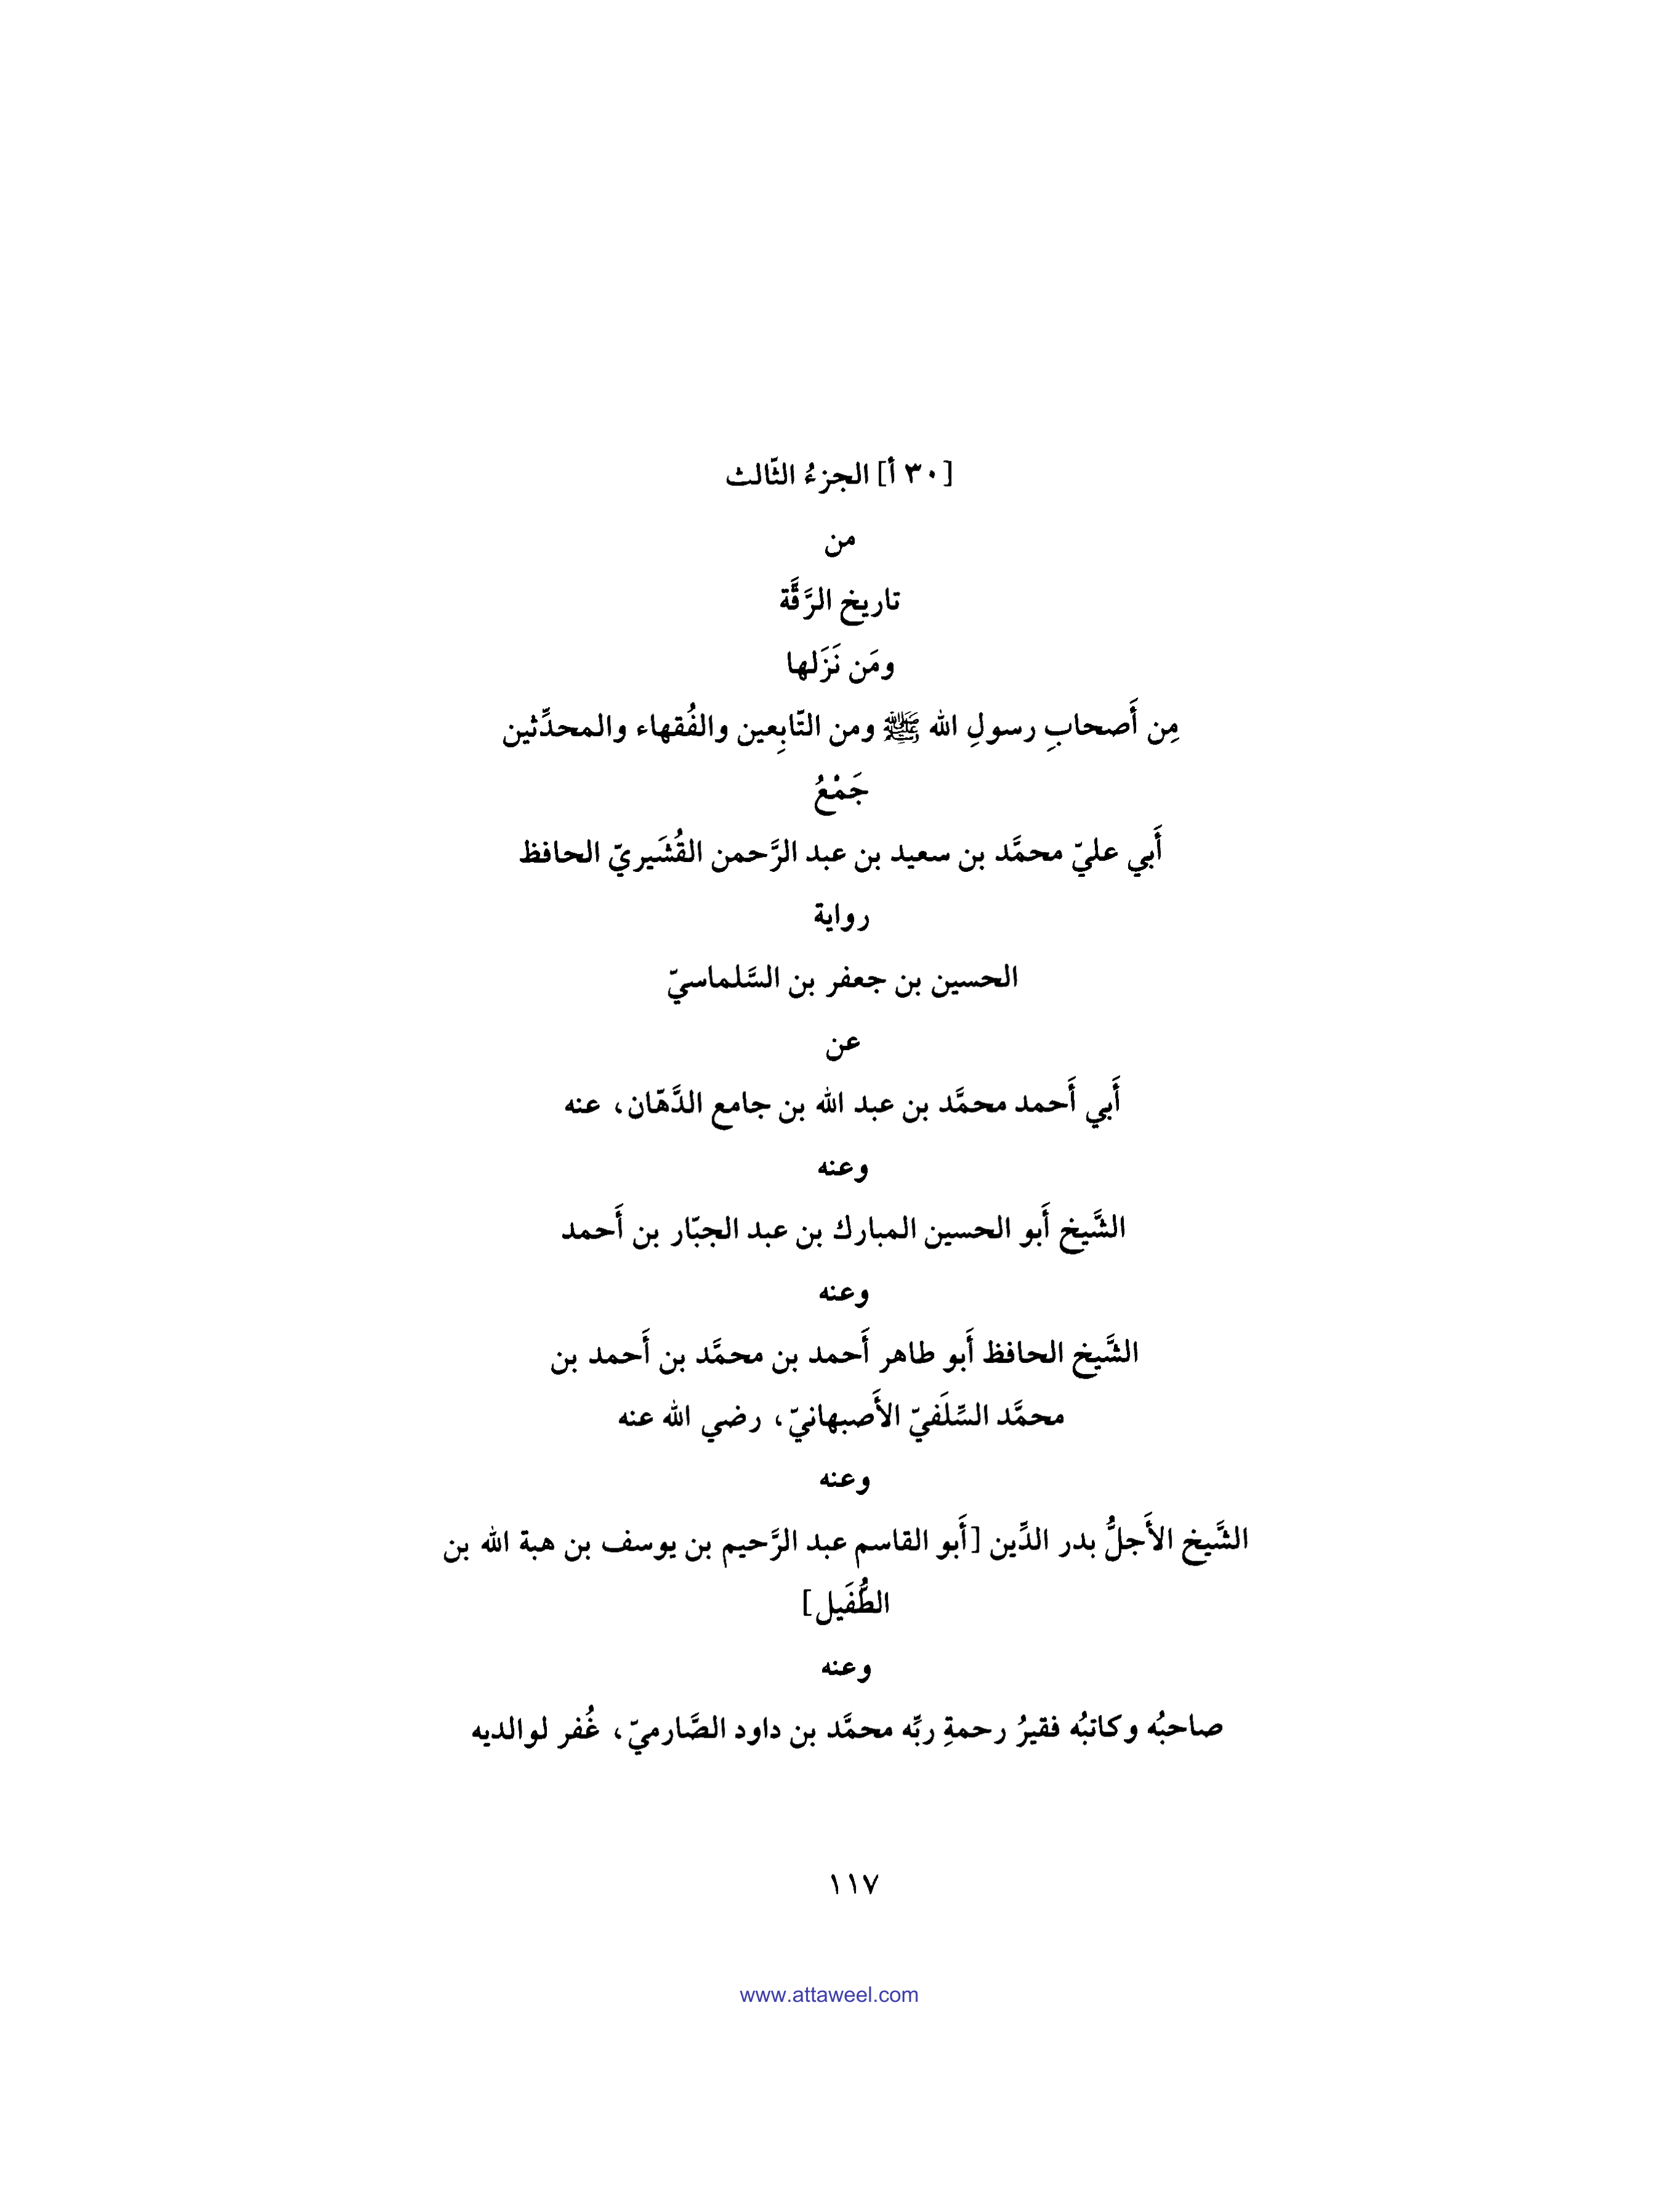 [٣٠ أ] الجزءُ الثّالث
من
تاريخ الرَّقَّة
ومَن نَزَلها
مِن أَصحابِ رسولِ الله ﷺ ومن التّابِعين والفُقهاء والمحدِّثين
جَمْعُ
أَبي عليّ محمَّد بن سعيد بن عبد الرَّحمن القُشَيريّ الحافظ
رواية
الحسين بن جعفر بن السَّلماسيّ
عن
أَبي أَحمد محمَّد بن عبد الله بن جامع الدَّهّان، عنه
وعنه
الشَّيخ أَبو الحسين المبارك بن عبد الجبّار بن أَحمد
وعنه
الشَّيخ الحافظ أَبو طاهر أَحمد بن محمَّد بن أَحمد بن
محمَّد السِّلَفيّ الأَصبهانيّ، رضي الله عنه
وعنه
الشَّيخ الأَجلُّ بدر الدِّين [أَبو القاسم عبد الرَّحيم بن يوسف بن هبة الله بن
الطُّفَيل]
وعنه
صاحبُه وكاتبُه فقيرُ رحمةِ ربِّه محمَّد بن داود الصَّارميّ، غُفر لوالديه
١١٧
www.attaweel.com